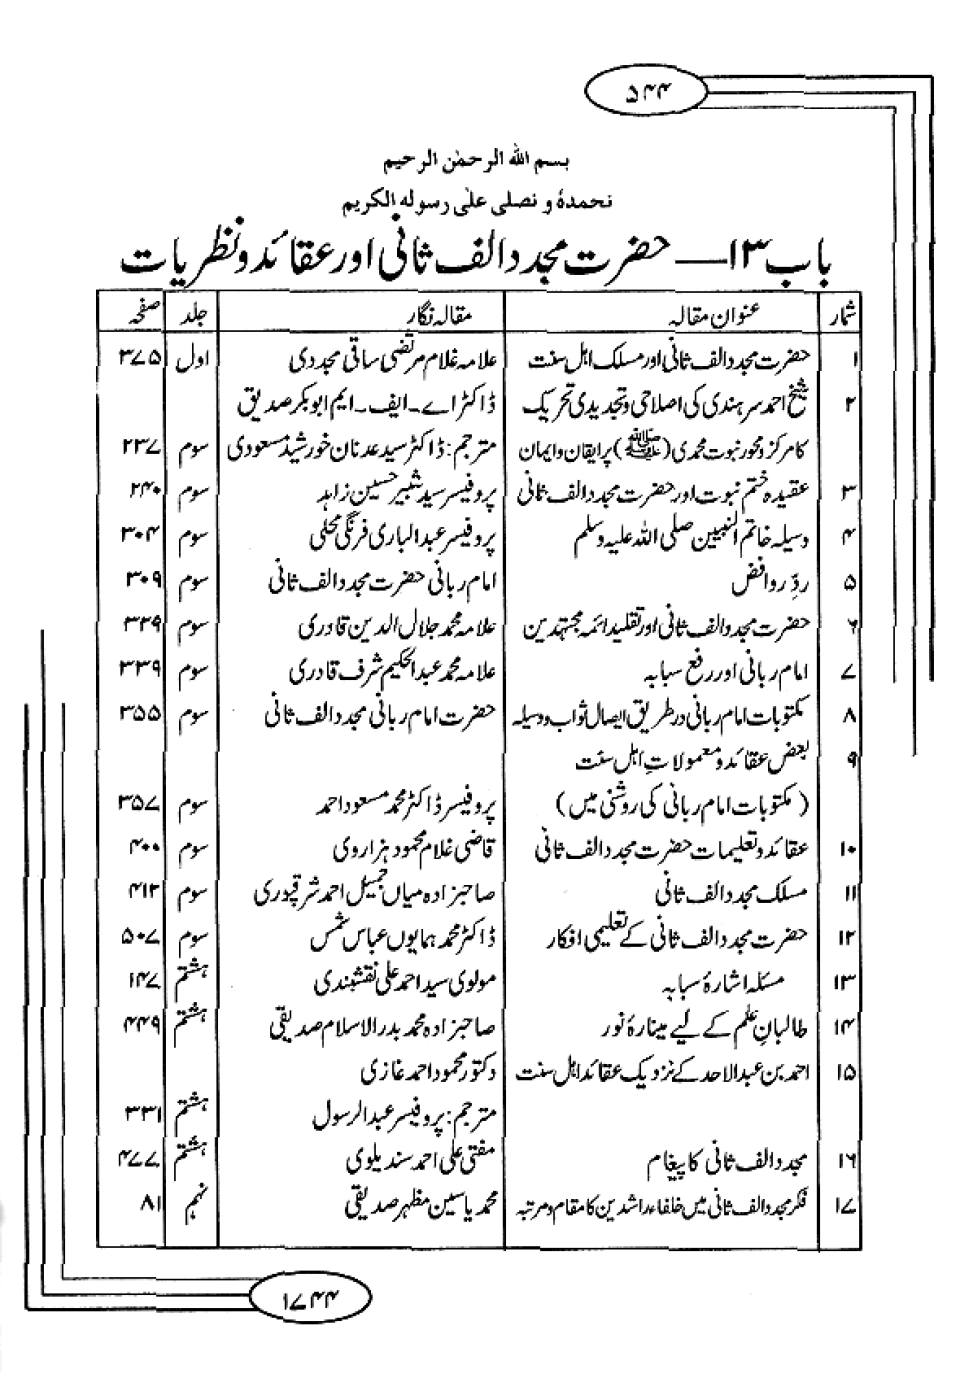 ۵۴۴
بسم الله الرحمٰن الرحيم
نحمدهٗ و نصلى علىٰ رسوله الكريم
باب ۱۳ــــ حضرت مجدد الف ثانی اور عقائد و نظریات
شمار عنوان مقالہ مقالہ نگار جلد صفحہ
۱ حضرت مجدد الف ثانی اور مسلک اہل سنت علامہ غلام مرتضی ساقی مجددی اول ۳۷۵
۲ شیخ احمد سرہندی کی اصلاحی و تجدیدی تحریک ڈاکٹر اے۔ ایف۔ ایم ابوبکر صدیق
کا مرکز و محور نبوت محمدی (ﷺ) پر ایقان و ایمان مترجم: ڈاکٹر سید عدنان خورشید مسعودی سوم ۲۳۷
۳ عقیدہ ختم نبوت اور حضرت مجدد الف ثانی پروفیسر سید شبیر حسین زاہد سوم ۲۴۰
۴ وسیلہ خاتم النبیین صلی اللہ علیہ وسلم پروفیسر عبدالباری فرنگی محلی سوم ۳۰۴
۵ ردِّ روافض امام ربانی حضرت مجدد الف ثانی سوم ۳۰۹
۶ حضرت مجدد الف ثانی اور تقلید ائمہ مجتہدین علامہ محمد جلال الدین قادری سوم ۳۲۹
۷ امام ربانی اور رفع سبابہ علامہ محمد عبدالحکیم شرف قادری سوم ۳۳۹
۸ مکتوبات امام ربانی در طریق ایصال ثواب و وسیلہ حضرت امام ربانی مجدد الف ثانی سوم ۳۵۵
۹ بعض عقائد و معمولاتِ اہل سنت
(مکتوبات امام ربانی کی روشنی میں) پروفیسر ڈاکٹر محمد مسعود احمد سوم ۳۵۷
۱۰ عقائد و تعلیمات حضرت مجدد الف ثانی قاضی غلام محمود ہزاروی سوم ۴۰۰
۱۱ مسلک مجدد الف ثانی صاحبزادہ میاں جمیل احمد شرقپوری سوم ۴۱۲
۱۲ حضرت مجدد الف ثانی کے تعلیمی افکار ڈاکٹر محمد ہمایوں عباس شمس سوم ۵۰۷
۱۳ مسئلہ اشارۂ سبابہ مولوی سید احمد علی نقشبندی ہشتم ۱۴۷
۱۴ طالبانِ علم کے لیے مینارۂ نور صاحبزادہ محمد بدر الاسلام صدیقی ہشتم ۴۴۹
۱۵ احمد بن عبدالاحد کے نزدیک عقائد اہل سنت دکتور محمود احمد غازی
مترجم: پروفیسر عبدالرسول ہشتم ۳۳۱
۱۶ مجدد الف ثانی کا پیغام مفتی علی احمد سندیلوی ہشتم ۴۷۷
۱۷ فکر مجدد الف ثانی میں خلفاء راشدین کا مقام و مرتبہ محمد یاسین مظہر صدیقی نہم ۸۱
۱۷۴۴